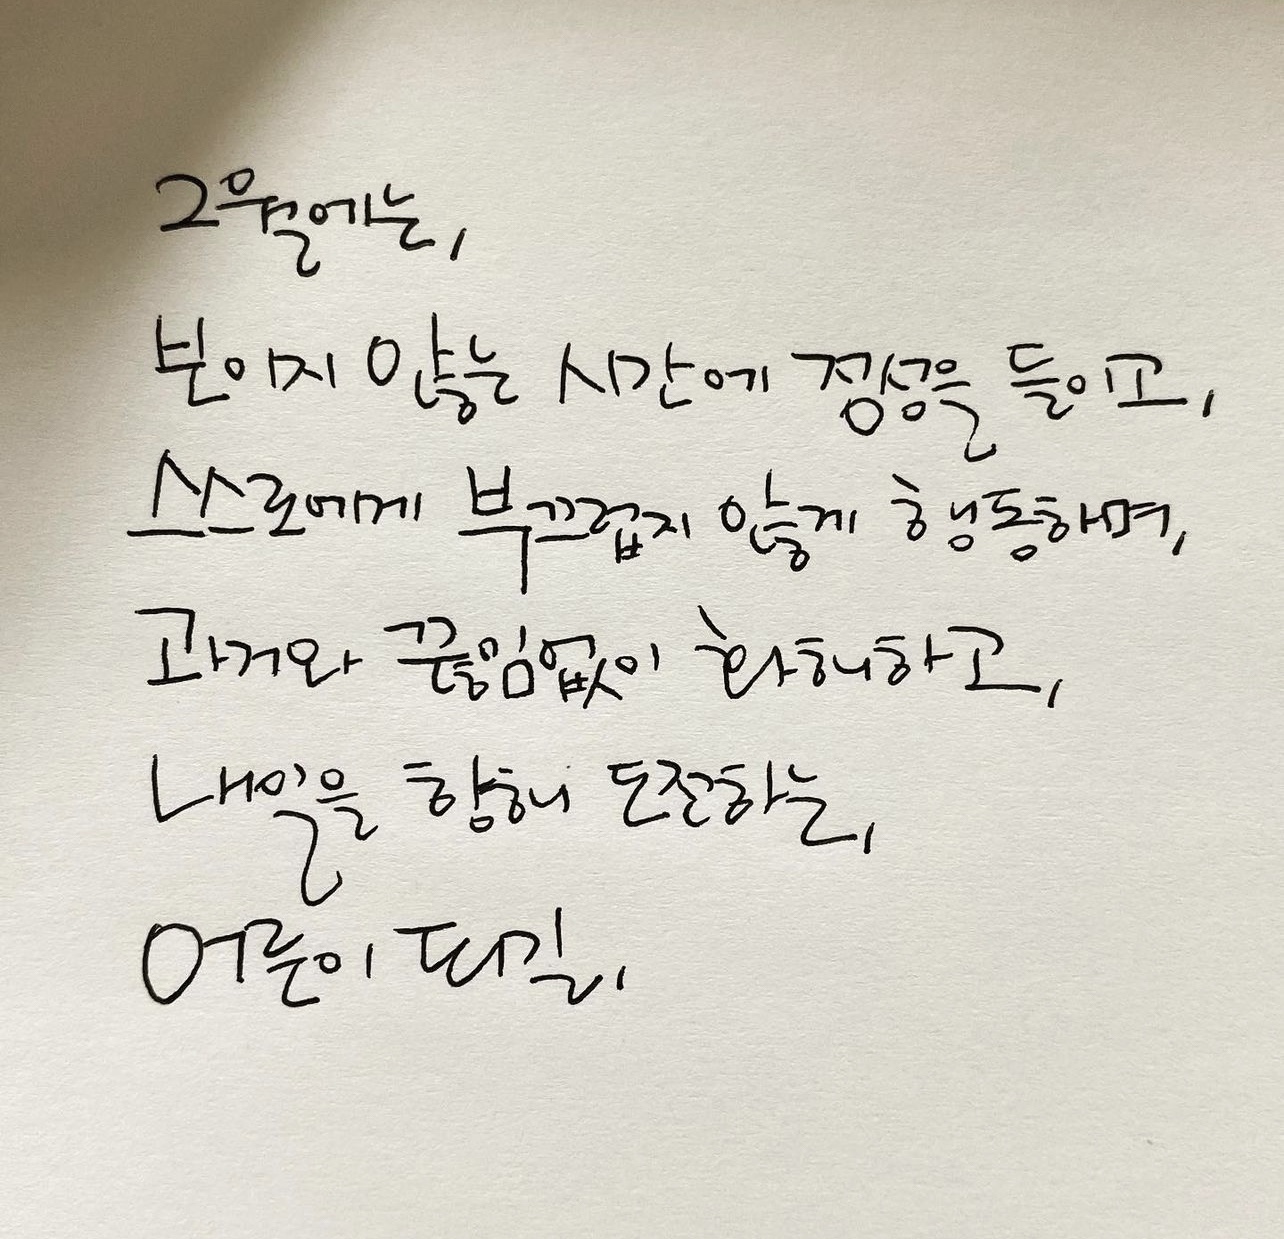 2월에는,
보이지 않는 시간에 정성을 들이고,
스스로에게 부끄럽지 않게 행동하며,
과거와 끊임없이 화해하고,
내일을 향해 도전하는,
어른이 되길,